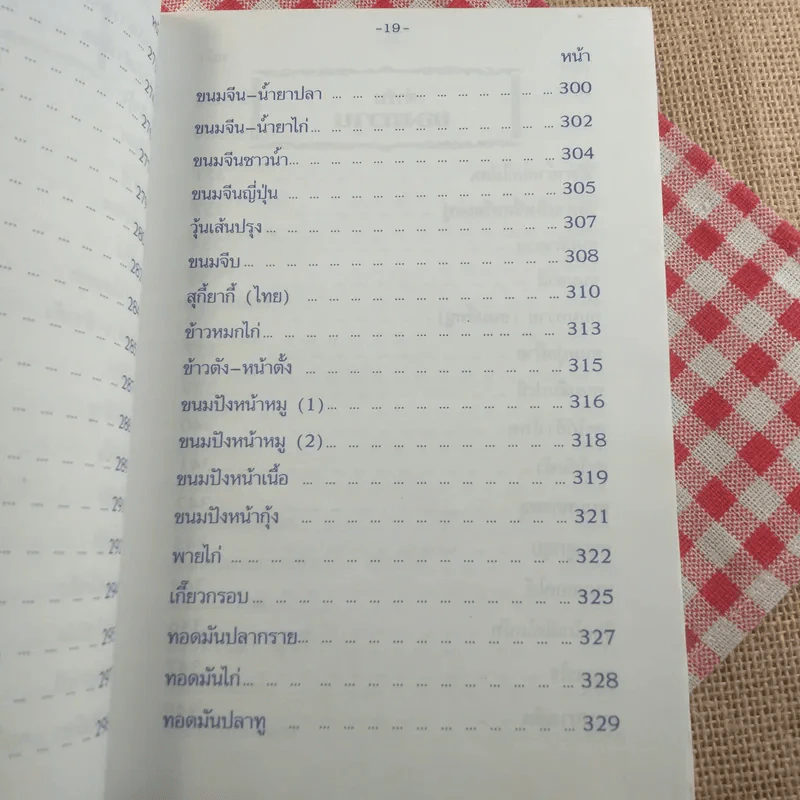 -19-
หน้า
ขนมจีน-น้ำยาปลา ... ... ... ... ... ... ... ... ... ... 300
ขนมจีน-น้ำยาไก่... ... ... ... ... ... ... ... ... ... ... 302
ขนมจีนซาวน้ำ... ... ... ... ... ... ... ... ... ... ... ... 304
ขนมจีนญี่ปุ่น ... ... ... ... ... ... ... ... ... ... ... ... 305
วุ้นเส้นปรุง... ... ... ... ... ... ... ... ... ... ... ... 307
ขนมจีบ ... ... ... ... ... ... ... ... ... ... ... ... ... 308
สุกี้ยากี้ (ไทย) ... ... ... ... ... ... ... ... ... ... ... 310
ข้าวหมกไก่... ... ... ... ... ... ... ... ... ... ... ... ... 313
ข้าวตัง-หน้าตั้ง ... ... ... ... ... ... ... ... ... ... ... 315
ขนมปังหน้าหมู (1)... ... ... ... ... ... ... ... ... ... ... 316
ขนมปังหน้าหมู (2)... ... ... ... ... ... ... ... ... ... ... 318
ขนมปังหน้าเนื้อ ... ... ... ... ... ... ... ... ... ... ... 319
ขนมปังหน้ากุ้ง ... ... ... ... ... ... ... ... ... ... ... 321
พายไก่ ... ... ... ... ... ... ... ... ... ... ... ... ... 322
เกี๊ยวกรอบ... ... ... ... ... ... ... ... ... ... ... ... ... 325
ทอดมันปลากราย... ... ... ... ... ... ... ... ... ... ... ... 327
ทอดมันไก่... ... ... ... ... ... ... ... ... ... ... ... ... 328
ทอดมันปลาทู ... ... ... ... ... ... ... ... ... ... ... ... 329